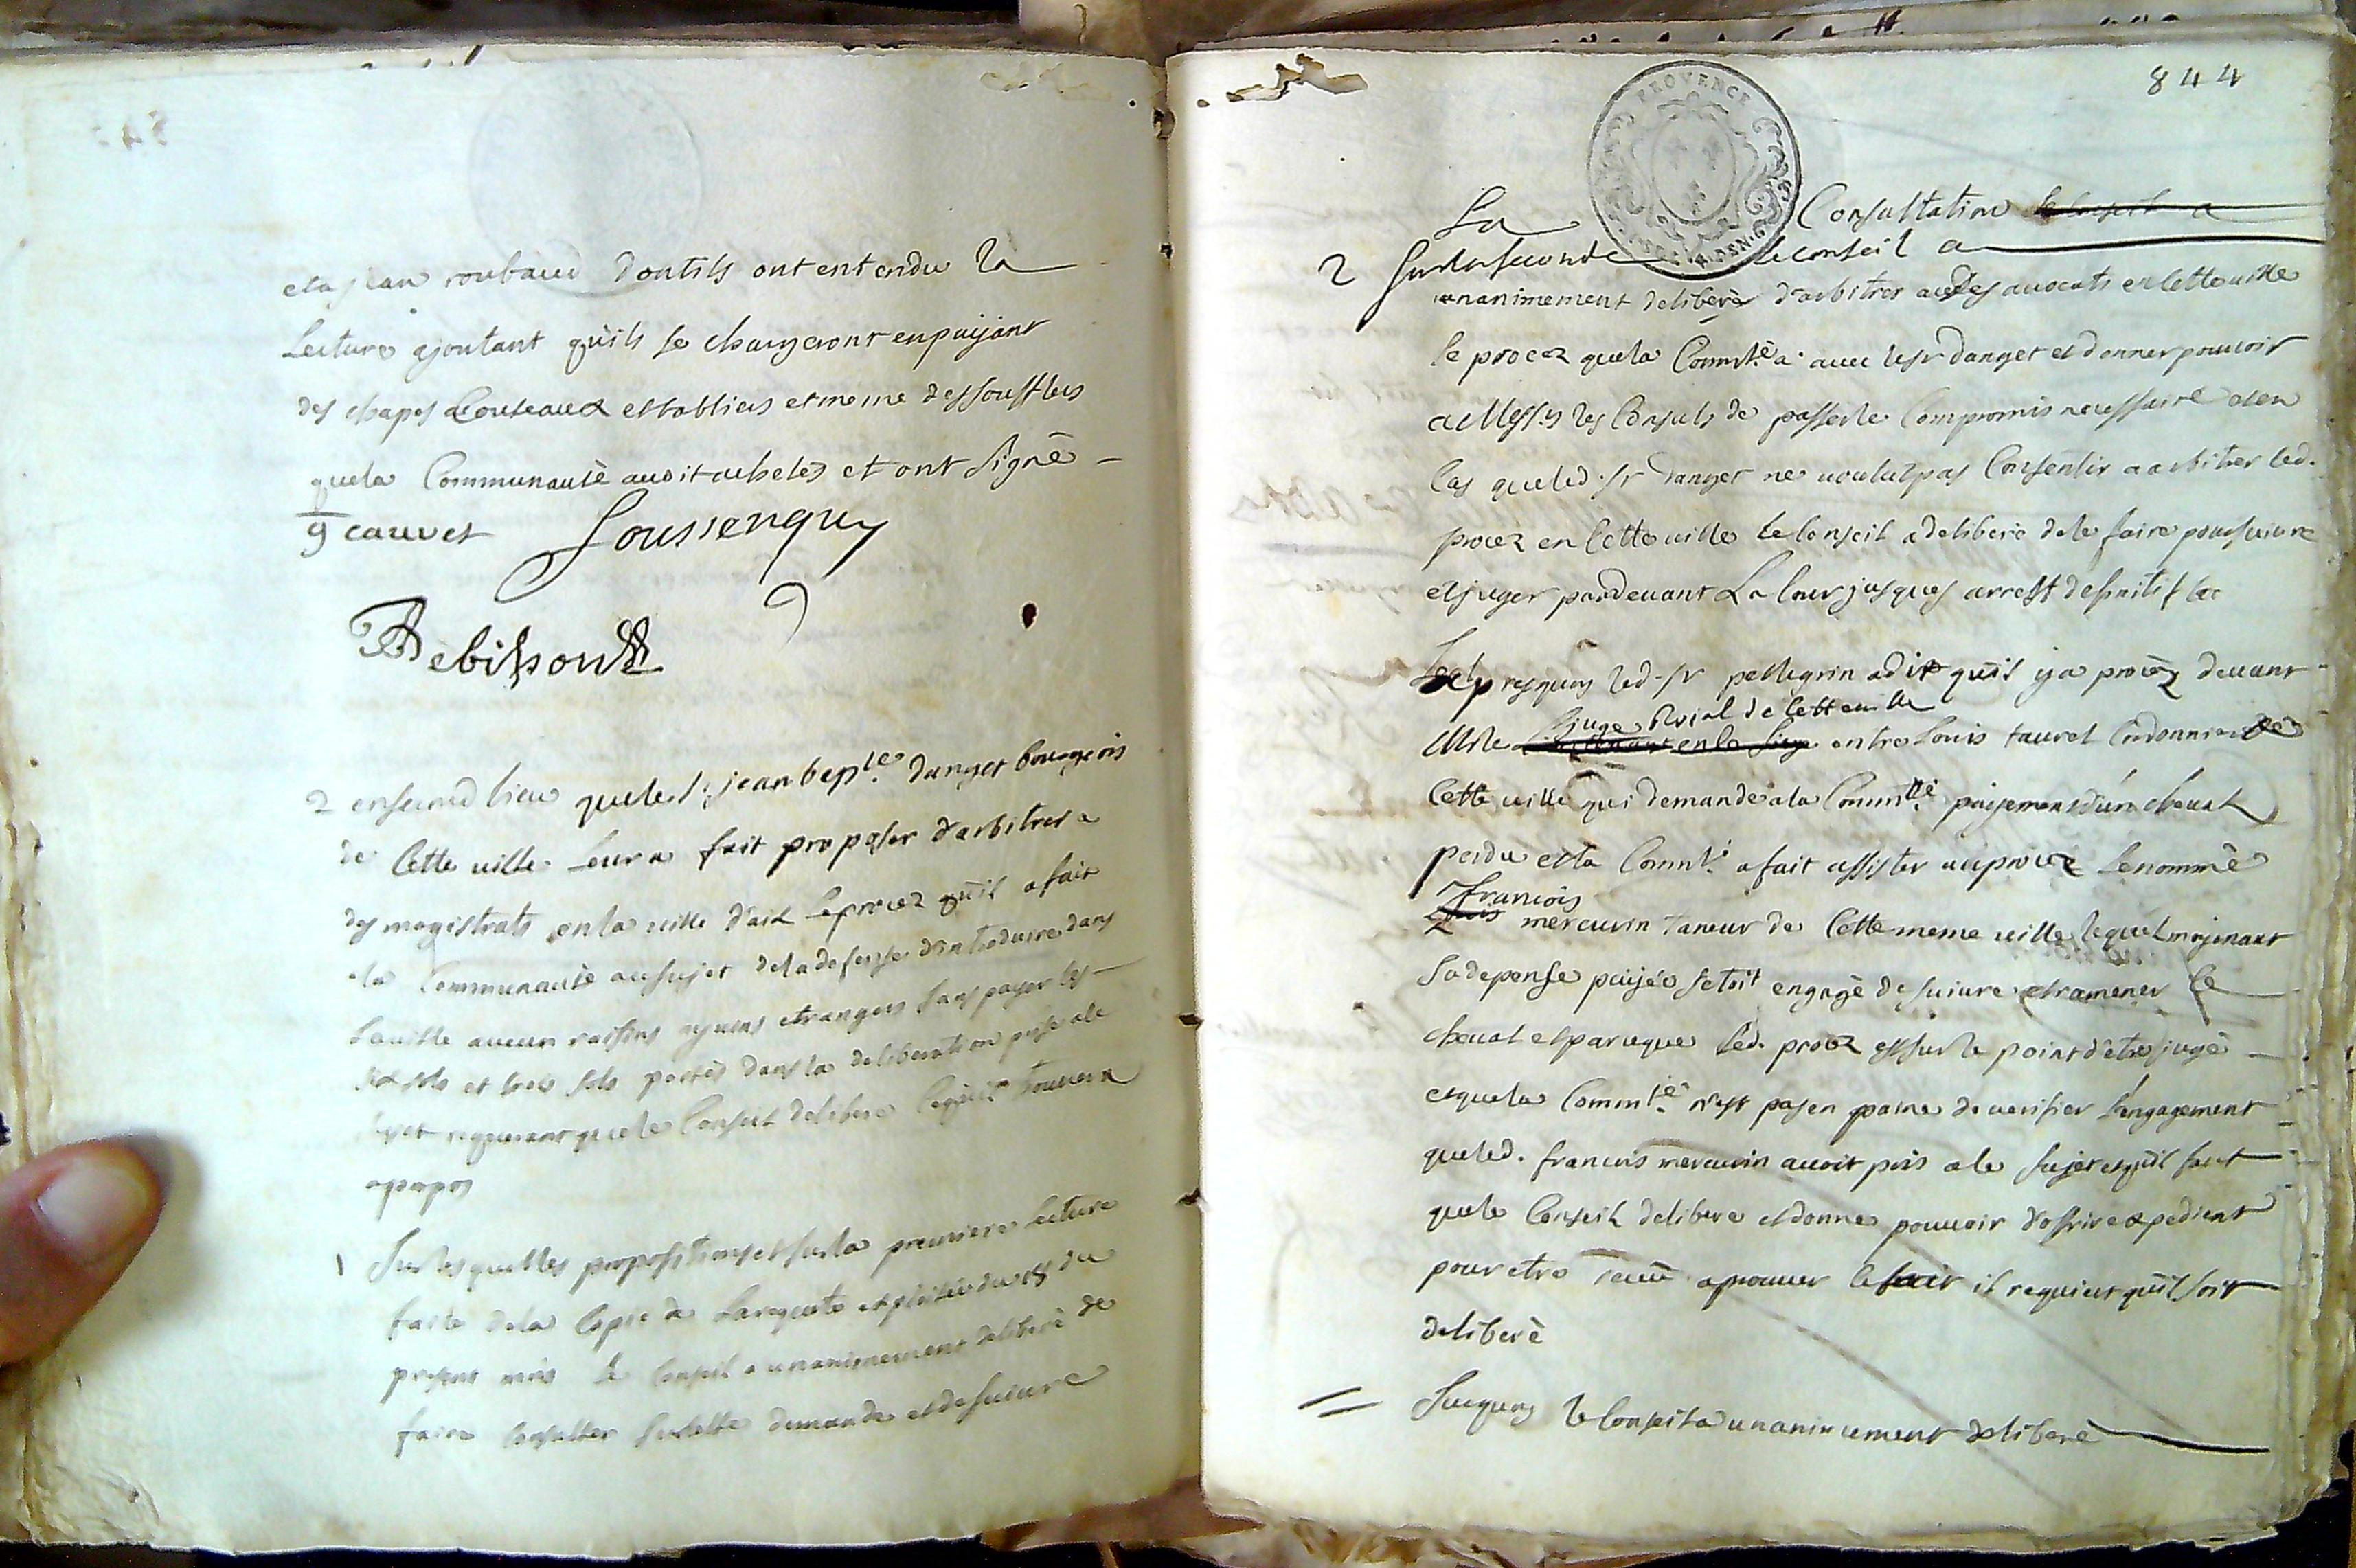 et a jean roubaud dont ils ont entendu la
Lecture ajoutant quils se chargeront en paijant
des chapes Couteaux et tabliers et meme des soufflets
que la Communauté auoit achetés et ont signé
g cauvet Soussenquy
Rebissout
2 en second lieu que le sr jean bapte danget bourgeois
de Cette uille leur a fait proposer d'arbitrer a
des magistrats en la uille d'aix le procez quil a fait
a la Communauté au sujet de la defense d'introduire dans
la uille aucun raisins etrangers sans payer les
six sols et trois sols portés dans la deliberation prise a le
sujet requerant que le Conseil delibere Ce quil trouuera
a propos
1 Sur lesquelles propositions et sur la premiere Lecture
faite de la Copie de La requete exploitée du du
present mois le Conseil a unanimement deliberé de
faire Consulter sur Cette demande et de suiure
844
PROVENCE
La Consultation le Conseil a
2 Sur la seconde le conseil a
unanimement deliberé d'arbitrer a des auocats en Cette uille
le procez que la Commté a auec le sr danget et donner pouuoir
a Messrs les Consuls de passer le Compromis necessaire et en
Cas que led. sr danget ne uoulut pas Consentir a arbitrer led.
procez en Cette uille le Conseil a deliberé de le faire poursuiure
et juger pardeuant La Cour jusques arrest definitif
apres quoy led. sr pellegrin a dit quil ija procez deuant
juge Roial de Cette uille
Mr le Lieutenant en le siege entre Louis tauvel Cordonnier de
Cette uille qui demande a la Commté paijement d'un cheual
perdu et la Commté a fait assister au procez le nommé
francois
Louis mercurin taneur de Cette meme uille lequel moijenant
sa depense paijée setoit engagé de suiure et ramener le
cheual et parceque led. procez est sur le point d'etre jugé
et que la Commté n'est pas en paine de uerifier L'engagement
que led. francois mercurin auoit pris a le sujet et quil faut
que le Conseil delibere et donne pouuoir d'offrir expedient
pour etre receu a prouuer le fait il requiert quil soit
deliberé
Surquoy le Conseil a unanimement deliberé